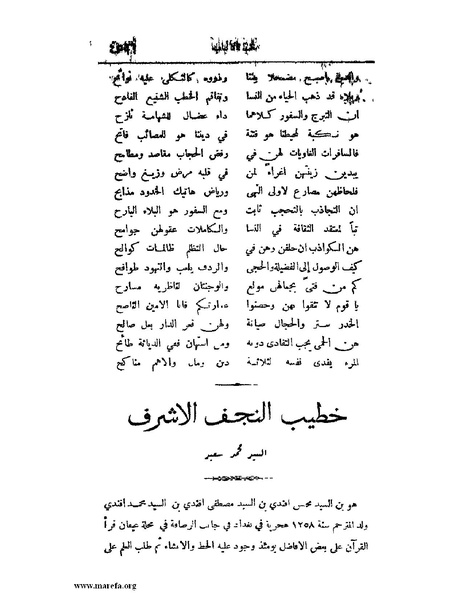 مضمحلا بيننا وذووه كالثكلى عليه نوائح
قد ذهب الحياء من النسا وتفاقم الخطب الشنيع الفادح
ان التبرج والسفور كلاهما داء عضال للشهامة نازح
هو نكبة لمحيطنا هو فتنة في ديننا هو للمصائب فاتح
فالسافرات الغاويات لهن في رفض الحجاب مقاصد ومطامح
يبدين زينتهن اغراءً لمن في قلبه مرض وزيغ واضح
فلحاظهن مصارع لاولى النهى ورياض هاتيك الخدود مذابح
ان التجاذب بالتحجب ثابت ومع السفور هو البلاء البارح
تباً لمعتقد الثقافة في النسا والكاملات عقولهن جوامح
هن الكواذب ان حلفن وهن في حال التظلم ظالمات كوالح
كيف الوصول إلى الفضيلة والحجى والردف يلعب والنهود طوافح
كم من فتىً بجمالهن مولع والوجنتان لناظريه مسارح
يا قوم لا تثقوا بهن وحصنوا فانا الامين الناصح
الخدر ستر والحجال صيانة ولهن قعر الدار بعل صالح
هن الحمى يجب التفادى دونه ومن استهان ففي الديانة طائح
المرء يفدى نفسه لثلاثة دين ومال والاهم مناكح
خطيب النجف الاشرف
السيد محمد سعيد
هو بن السيد محسن افندي بن السيد مصطفى افندي بن السيد محمد افندي
ولد المترجم سنة ١٢٥٨ هجرية في بغداد في جانب الرصافة في محلة قرأ
القرآن على بعض الافاضل يومئذ وجود عليه الخط والانشاء ثم طلب العلم على
www.marefa.org